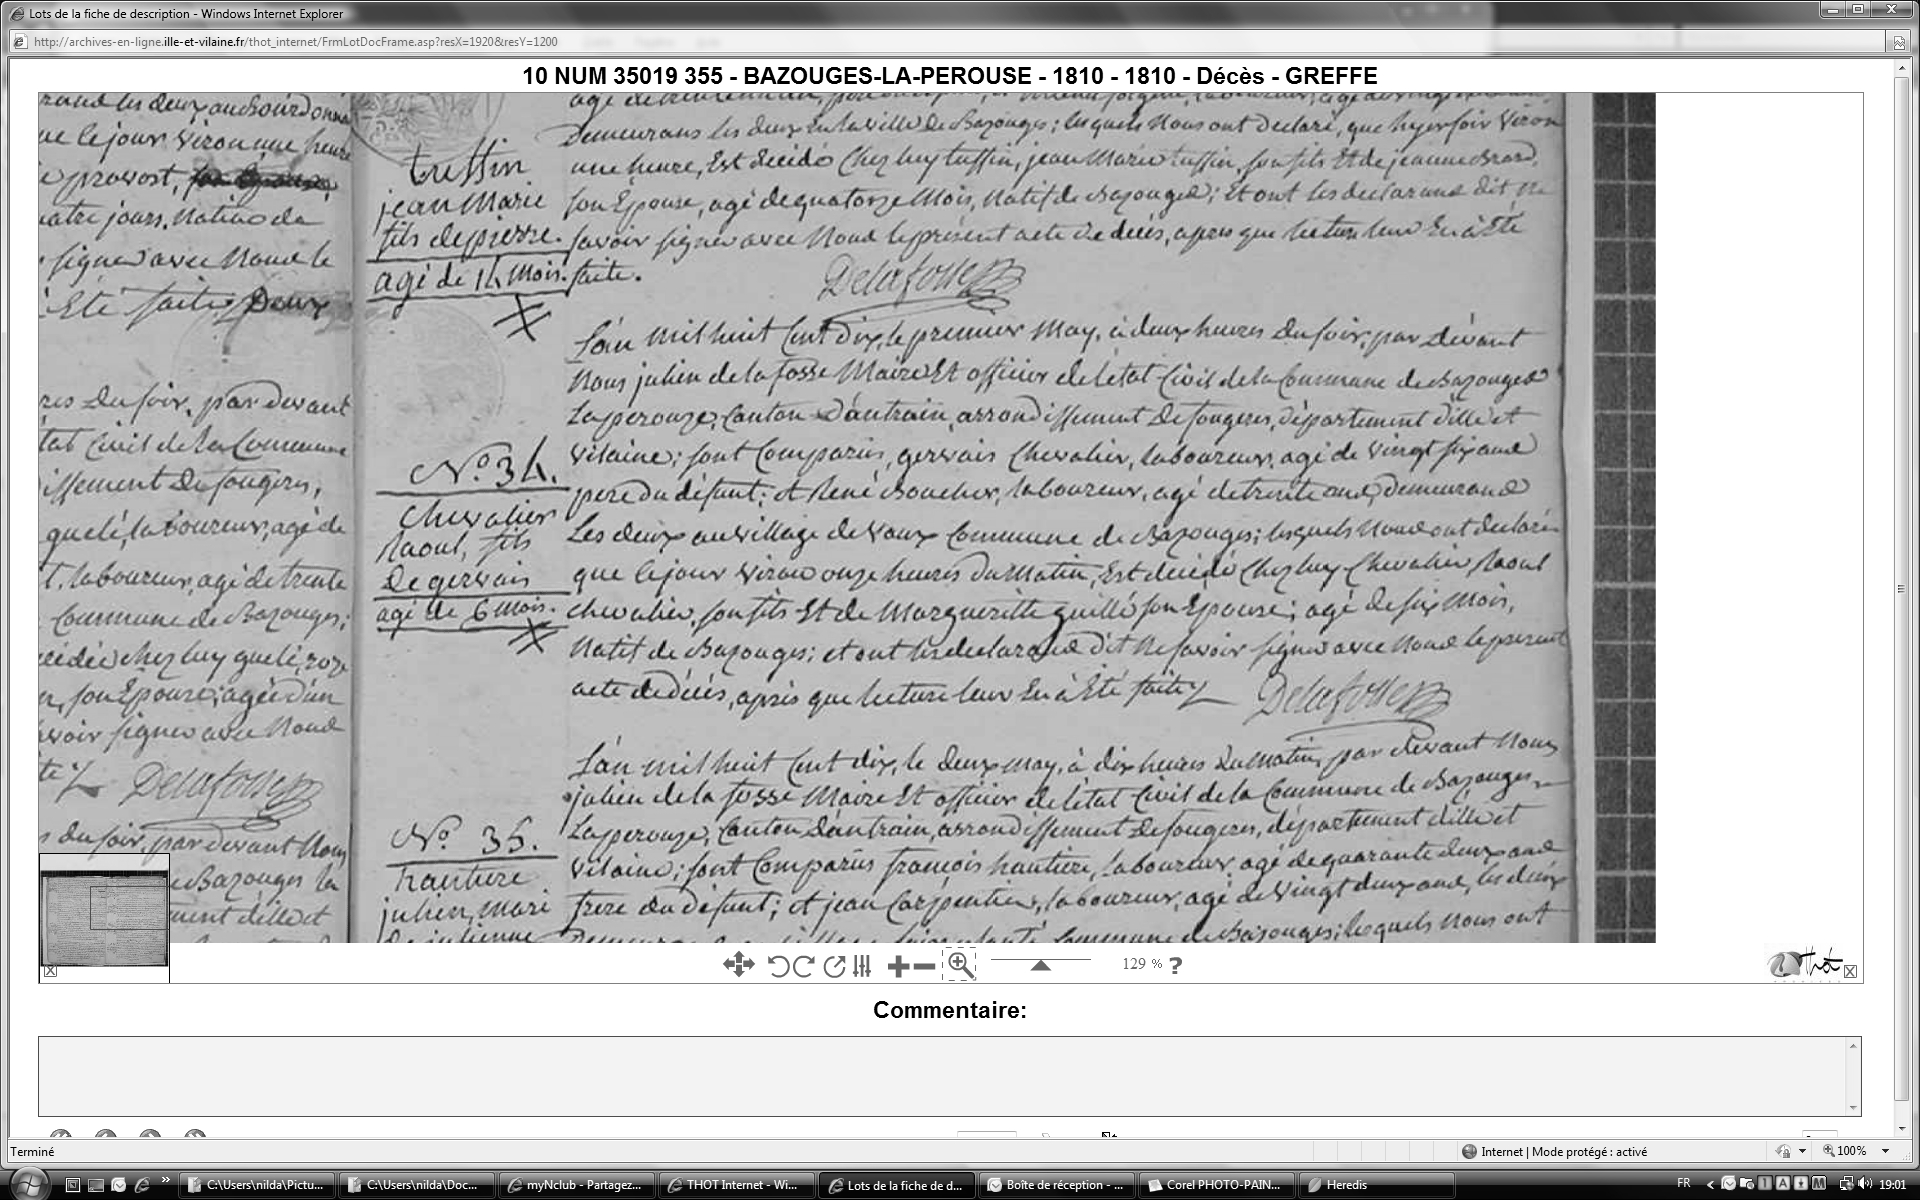 Lots de la fiche de description - Windows Internet Explorer
http://archives-en-ligne.ille-et-vilaine.fr/thot_internet/FrmLotDocFrame.asp?resX=1920&resY=1200
10 NUM 35019 355 - BAZOUGES-LA-PEROUSE - 1810 - 1810 - Décès - GREFFE
ue le jour viron une heure
provost,
quatre jours, natif de
signer avec Nous le
Eté faite
res du soir, par devant
tat Civil de la Commune
issement de fougeres,
quelé, laboureur, agé de
t, laboureur, agé de trente
Commune de Bazouges;
décédé chez luy quelé, roze
son Epouse; agée d'un
avoir signer avec Nous
Delafosse
s du soir, par devant Nous
de Bazouges la
ment d'ille et
tuffin
jean Marie
fils de pierre.
agé de 14 Mois.
Demeurans les deux en la ville de Bazouges; lesquels Nous ont declaré, que hyer soir viron
une heure, Est decédé chez luy tuffin, jean Marie tuffin, son fils Et de jeanne
son Epouse, agé de quatorze Mois, Natif de Bazouges; Et ont les declarans dit Ne
savoir signer avec Nous le présent acte de décés, après que lecture leur En a Eté
faite.
Delafosse
L'an mil huit Cent dix, le premier May, à deux heures du soir, par dévant
Nous julien de la fosse Maire Et officier de l'état Civil de la Commune de Bazouges
Laperouze, Canton d'antrain, arrondissement De fougeres, département d'ille et
Vilaine; sont Comparus, gervais Chevalier, laboureur, agé de vingt six ans
pere du défunt; et René Boucher, laboureur, agé de trente ans, demeurans
Les deux au village de vaux Commune de Bazouges; lesquels Nous ont declaré
que le jour viron onze heures du Matin, Est decédé Chez luy Chevalier, Raoul
chevalier, son fils Et de Margueritte guillé son Epouse; agé de six Mois,
Natif de Bazouges; et ont les declarans dit Ne savoir signer avec Nous le présent
acte de décés, après que lecture leur En à Eté faite
Delafosse
No. 34.
Chevalier
Raoul, fils
De gervais
agé de 6 Mois.
L'an mil huit Cent dix, le deux may, à dix heures du matin, par devant Nous
julien de la fosse Maire Et officier de l'état Civil de la Commune de Bazouges
Laperouze, Canton d'antrain, arrondissement De fougeres, département d'ille et
Vilaine; sont Comparus françois hautiere, laboureur, agé de quarante deux ans
frere du défunt; et jean Carpentier, laboureur, agé de vingt deux ans, les deux
Commune de Bazouges; lesquels Nous ont
No. 35.
hautiere
julien, Mari
De julienne
129 % ?
Thot
Commentaire:
Terminé
Internet | Mode protégé : activé
100%
C:\Users\nilda\Pictu...
C:\Users\nilda\Doc...
myNclub - Partagez...
THOT Internet - Wi...
Lots de la fiche de d...
Boîte de réception - ...
Corel PHOTO-PAIN...
Heredis
FR
19:01